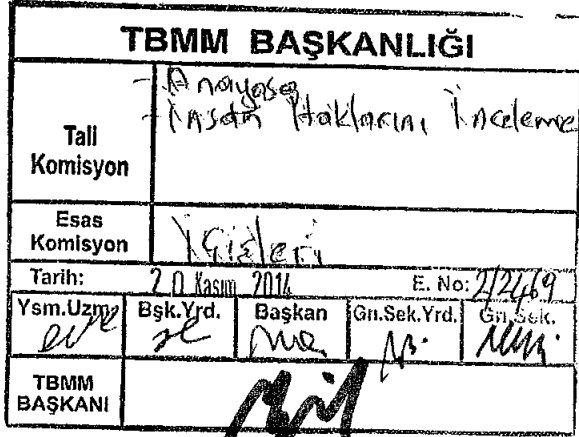 TBMM BAŞKANLIĞI
Tali Komisyon
- Anayasa
- İnsan Haklarını İnceleme
Esas Komisyon
İçişleri
Tarih: 20 Kasım 2014 E. No: 2/2469
Ysm.Uzm. Bşk.Yrd. Başkan Gn.Sek.Yrd. Gn.Sek.
TBMM BAŞKANI